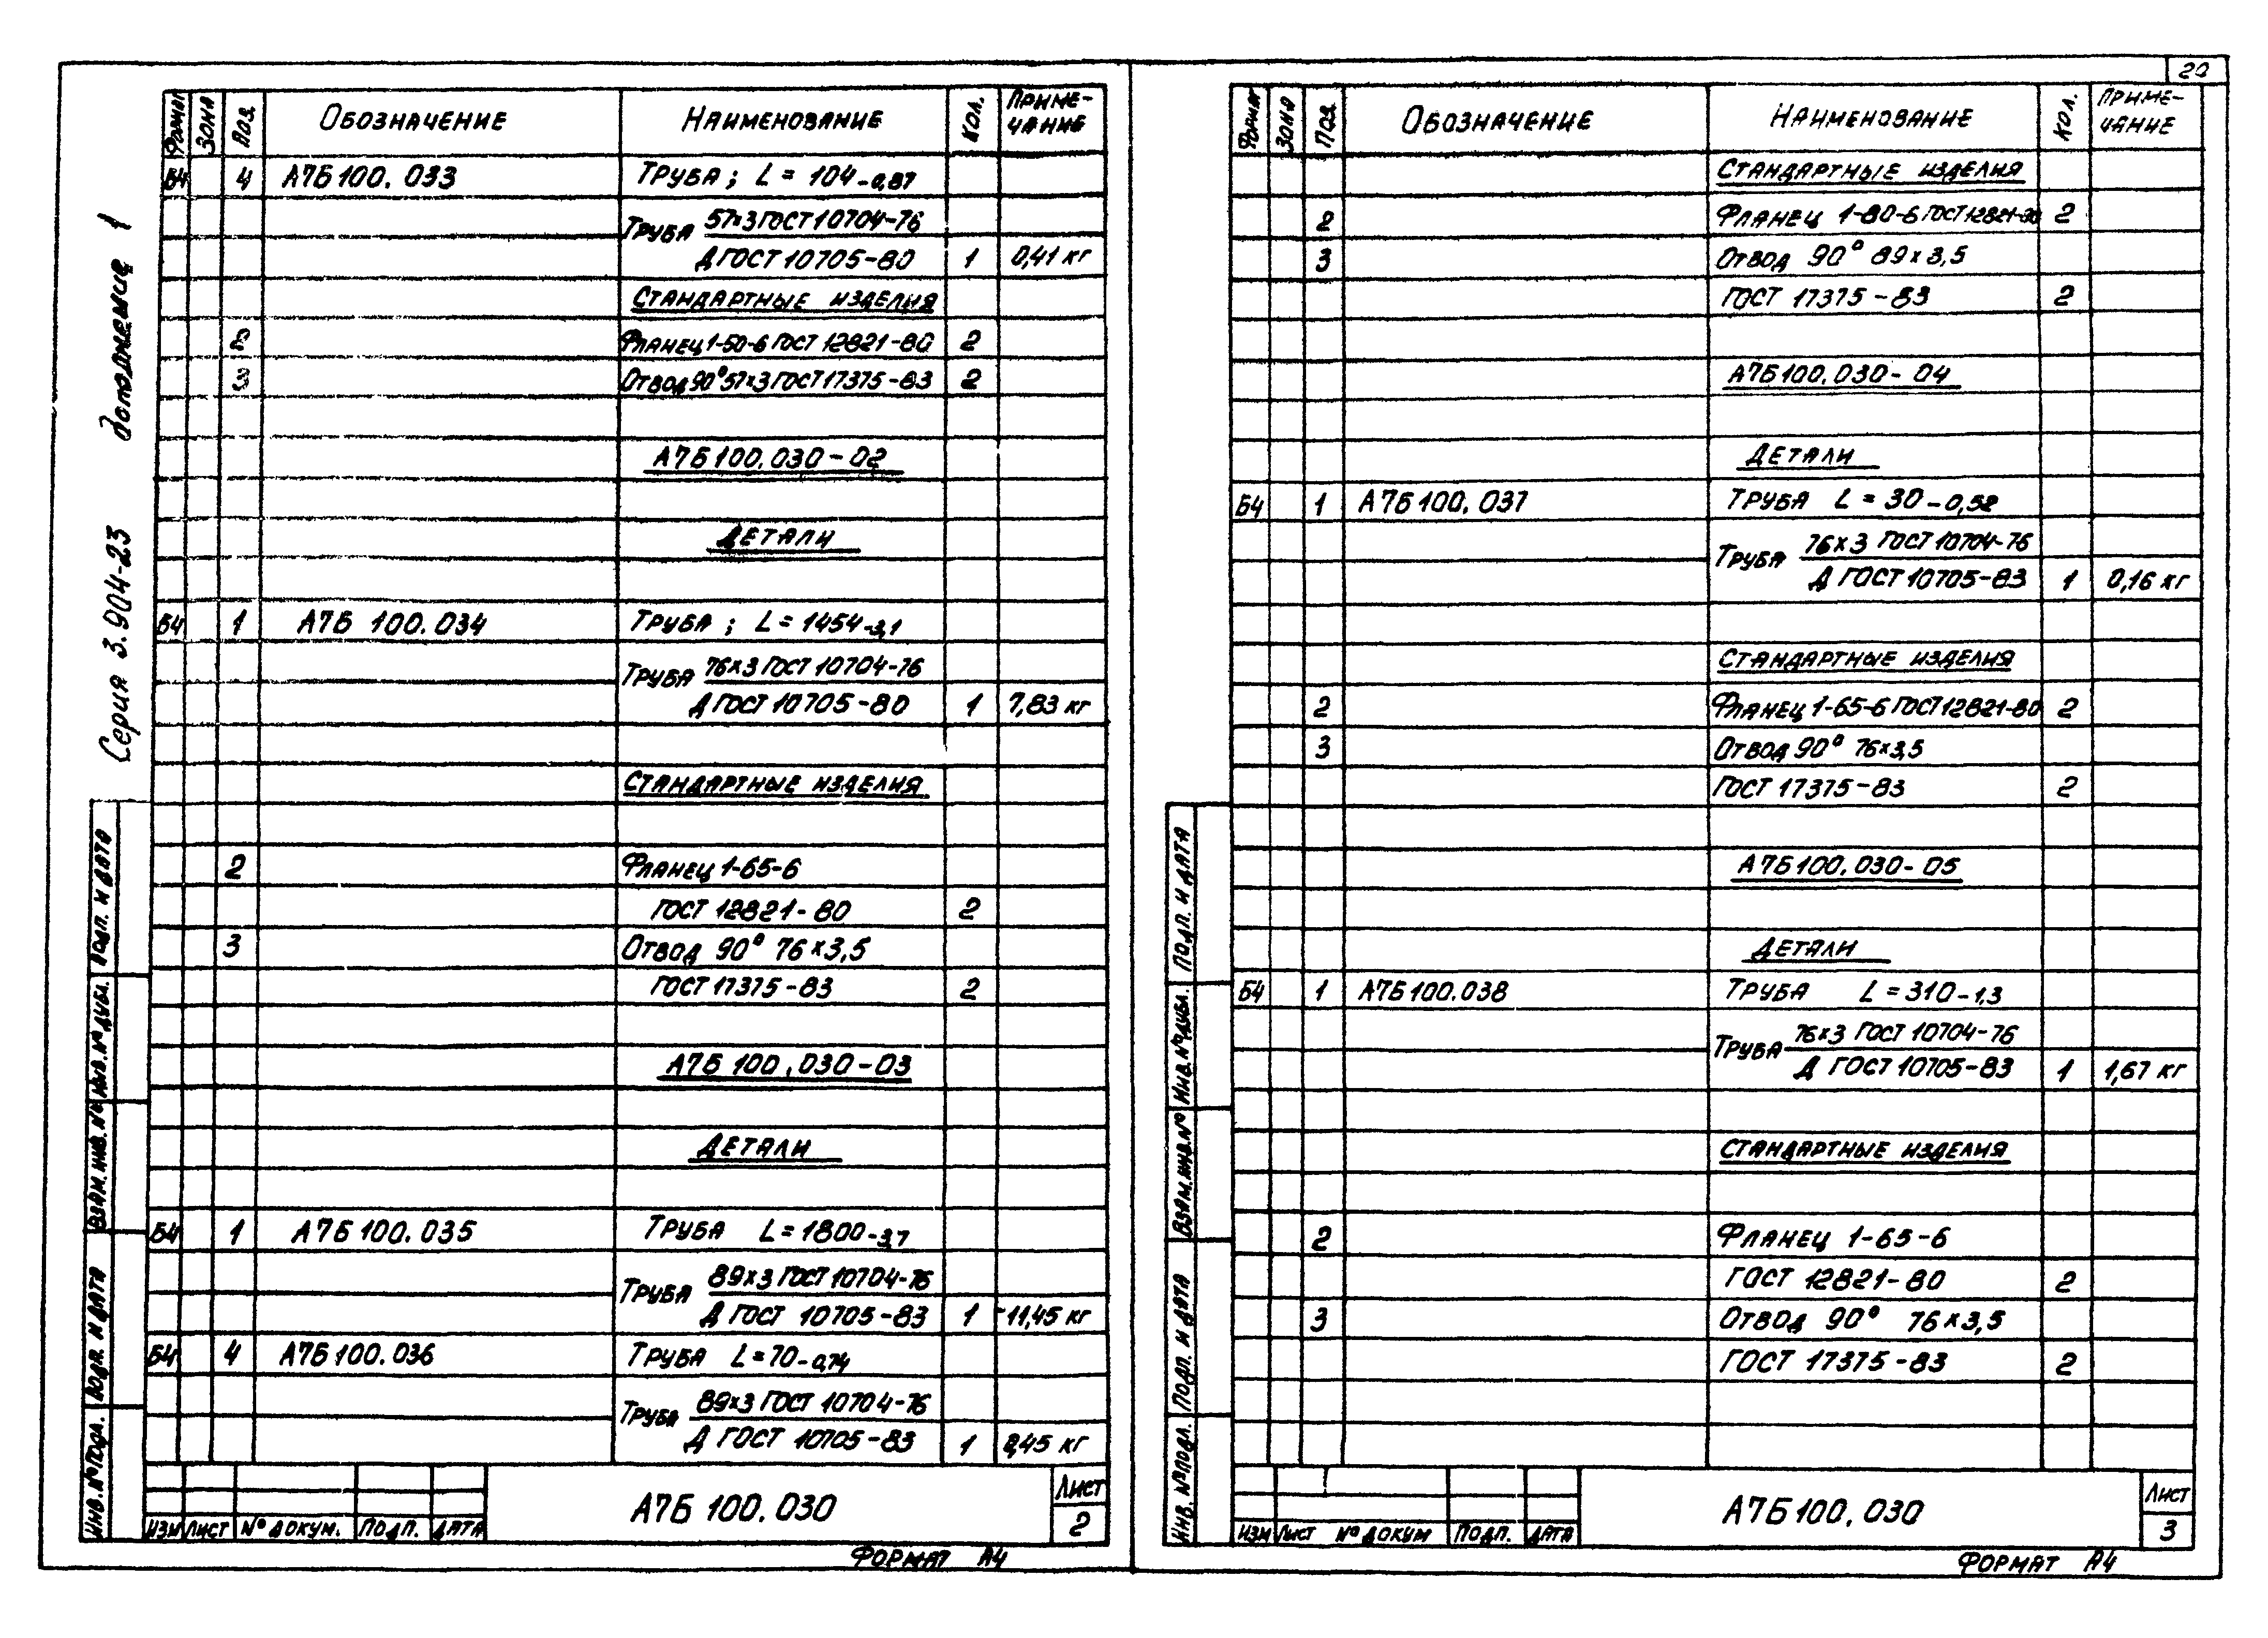 20
Серия 3.904-23 дополнение 1
ФОРМАТ ЗОНА ПОЗ. ОБОЗНАЧЕНИЕ НАИМЕНОВАНИЕ КОЛ. ПРИМЕ-
ЧАНИЕ
Б4 4 А7Б100.033 ТРУБА; L=104-0,87
ТРУБА 57х3 ГОСТ 10704-76
Д ГОСТ 10705-80 1 0,41 кг
СТАНДАРТНЫЕ ИЗДЕЛИЯ
2 ФЛАНЕЦ 1-50-6 ГОСТ 12821-80 2
3 ОТВОД 90° 57х3 ГОСТ 17375-83 2
А7Б100.030-02
ДЕТАЛИ
Б4 1 А7Б 100.034 ТРУБА; L=1454-3,1
ТРУБА 76х3 ГОСТ 10704-76
Д ГОСТ 10705-80 1 7,83 кг
СТАНДАРТНЫЕ ИЗДЕЛИЯ
2 ФЛАНЕЦ 1-65-6
ГОСТ 12821-80 2
3 ОТВОД 90° 76х3,5
ГОСТ 17375-83 2
А7Б 100.030-03
ДЕТАЛИ
Б4 1 А7Б 100.035 ТРУБА L=1800-3,7
ТРУБА 89х3 ГОСТ 10704-76
Д ГОСТ 10705-83 1 11,45 кг
Б4 4 А7Б100.036 ТРУБА L=70-0,74
ТРУБА 89х3 ГОСТ 10704-76
Д ГОСТ 10705-83 1 0,45 кг
ИНВ.№ПОДЛ. ПОДП. И ДАТА ВЗАМ.ИНВ.№ ИНВ.№ДУБЛ. ПОДП. И ДАТА
ИЗМ ЛИСТ № ДОКУМ. ПОДП. ДАТА
А7Б 100.030
ЛИСТ
2
ФОРМАТ А4
ФОРМАТ ЗОНА ПОЗ. ОБОЗНАЧЕНИЕ НАИМЕНОВАНИЕ КОЛ. ПРИМЕ-
ЧАНИЕ
СТАНДАРТНЫЕ ИЗДЕЛИЯ
2 ФЛАНЕЦ 1-80-6 ГОСТ 12821-80 2
3 ОТВОД 90° 89х3,5
ГОСТ 17375-83 2
А7Б100.030-04
ДЕТАЛИ
Б4 1 А7Б100.037 ТРУБА L=30-0,52
ТРУБА 76х3 ГОСТ 10704-76
Д ГОСТ 10705-83 1 0,16 кг
СТАНДАРТНЫЕ ИЗДЕЛИЯ
2 ФЛАНЕЦ 1-65-6 ГОСТ 12821-80 2
3 ОТВОД 90° 76х3,5
ГОСТ 17375-83 2
А7Б100.030-05
ДЕТАЛИ
Б4 1 А7Б100.038 ТРУБА L=310-1,3
ТРУБА 76х3 ГОСТ 10704-76
Д ГОСТ 10705-83 1 1,67 кг
СТАНДАРТНЫЕ ИЗДЕЛИЯ
2 ФЛАНЕЦ 1-65-6
ГОСТ 12821-80 2
3 ОТВОД 90° 76х3,5
ГОСТ 17375-83 2
ИНВ.№ПОДЛ. ПОДП. И ДАТА ВЗАМ.ИНВ.№ ИНВ.№ДУБЛ. ПОДП. И ДАТА
ИЗМ ЛИСТ № ДОКУМ ПОДП. ДАТА
А7Б100.030
ЛИСТ
3
ФОРМАТ А4